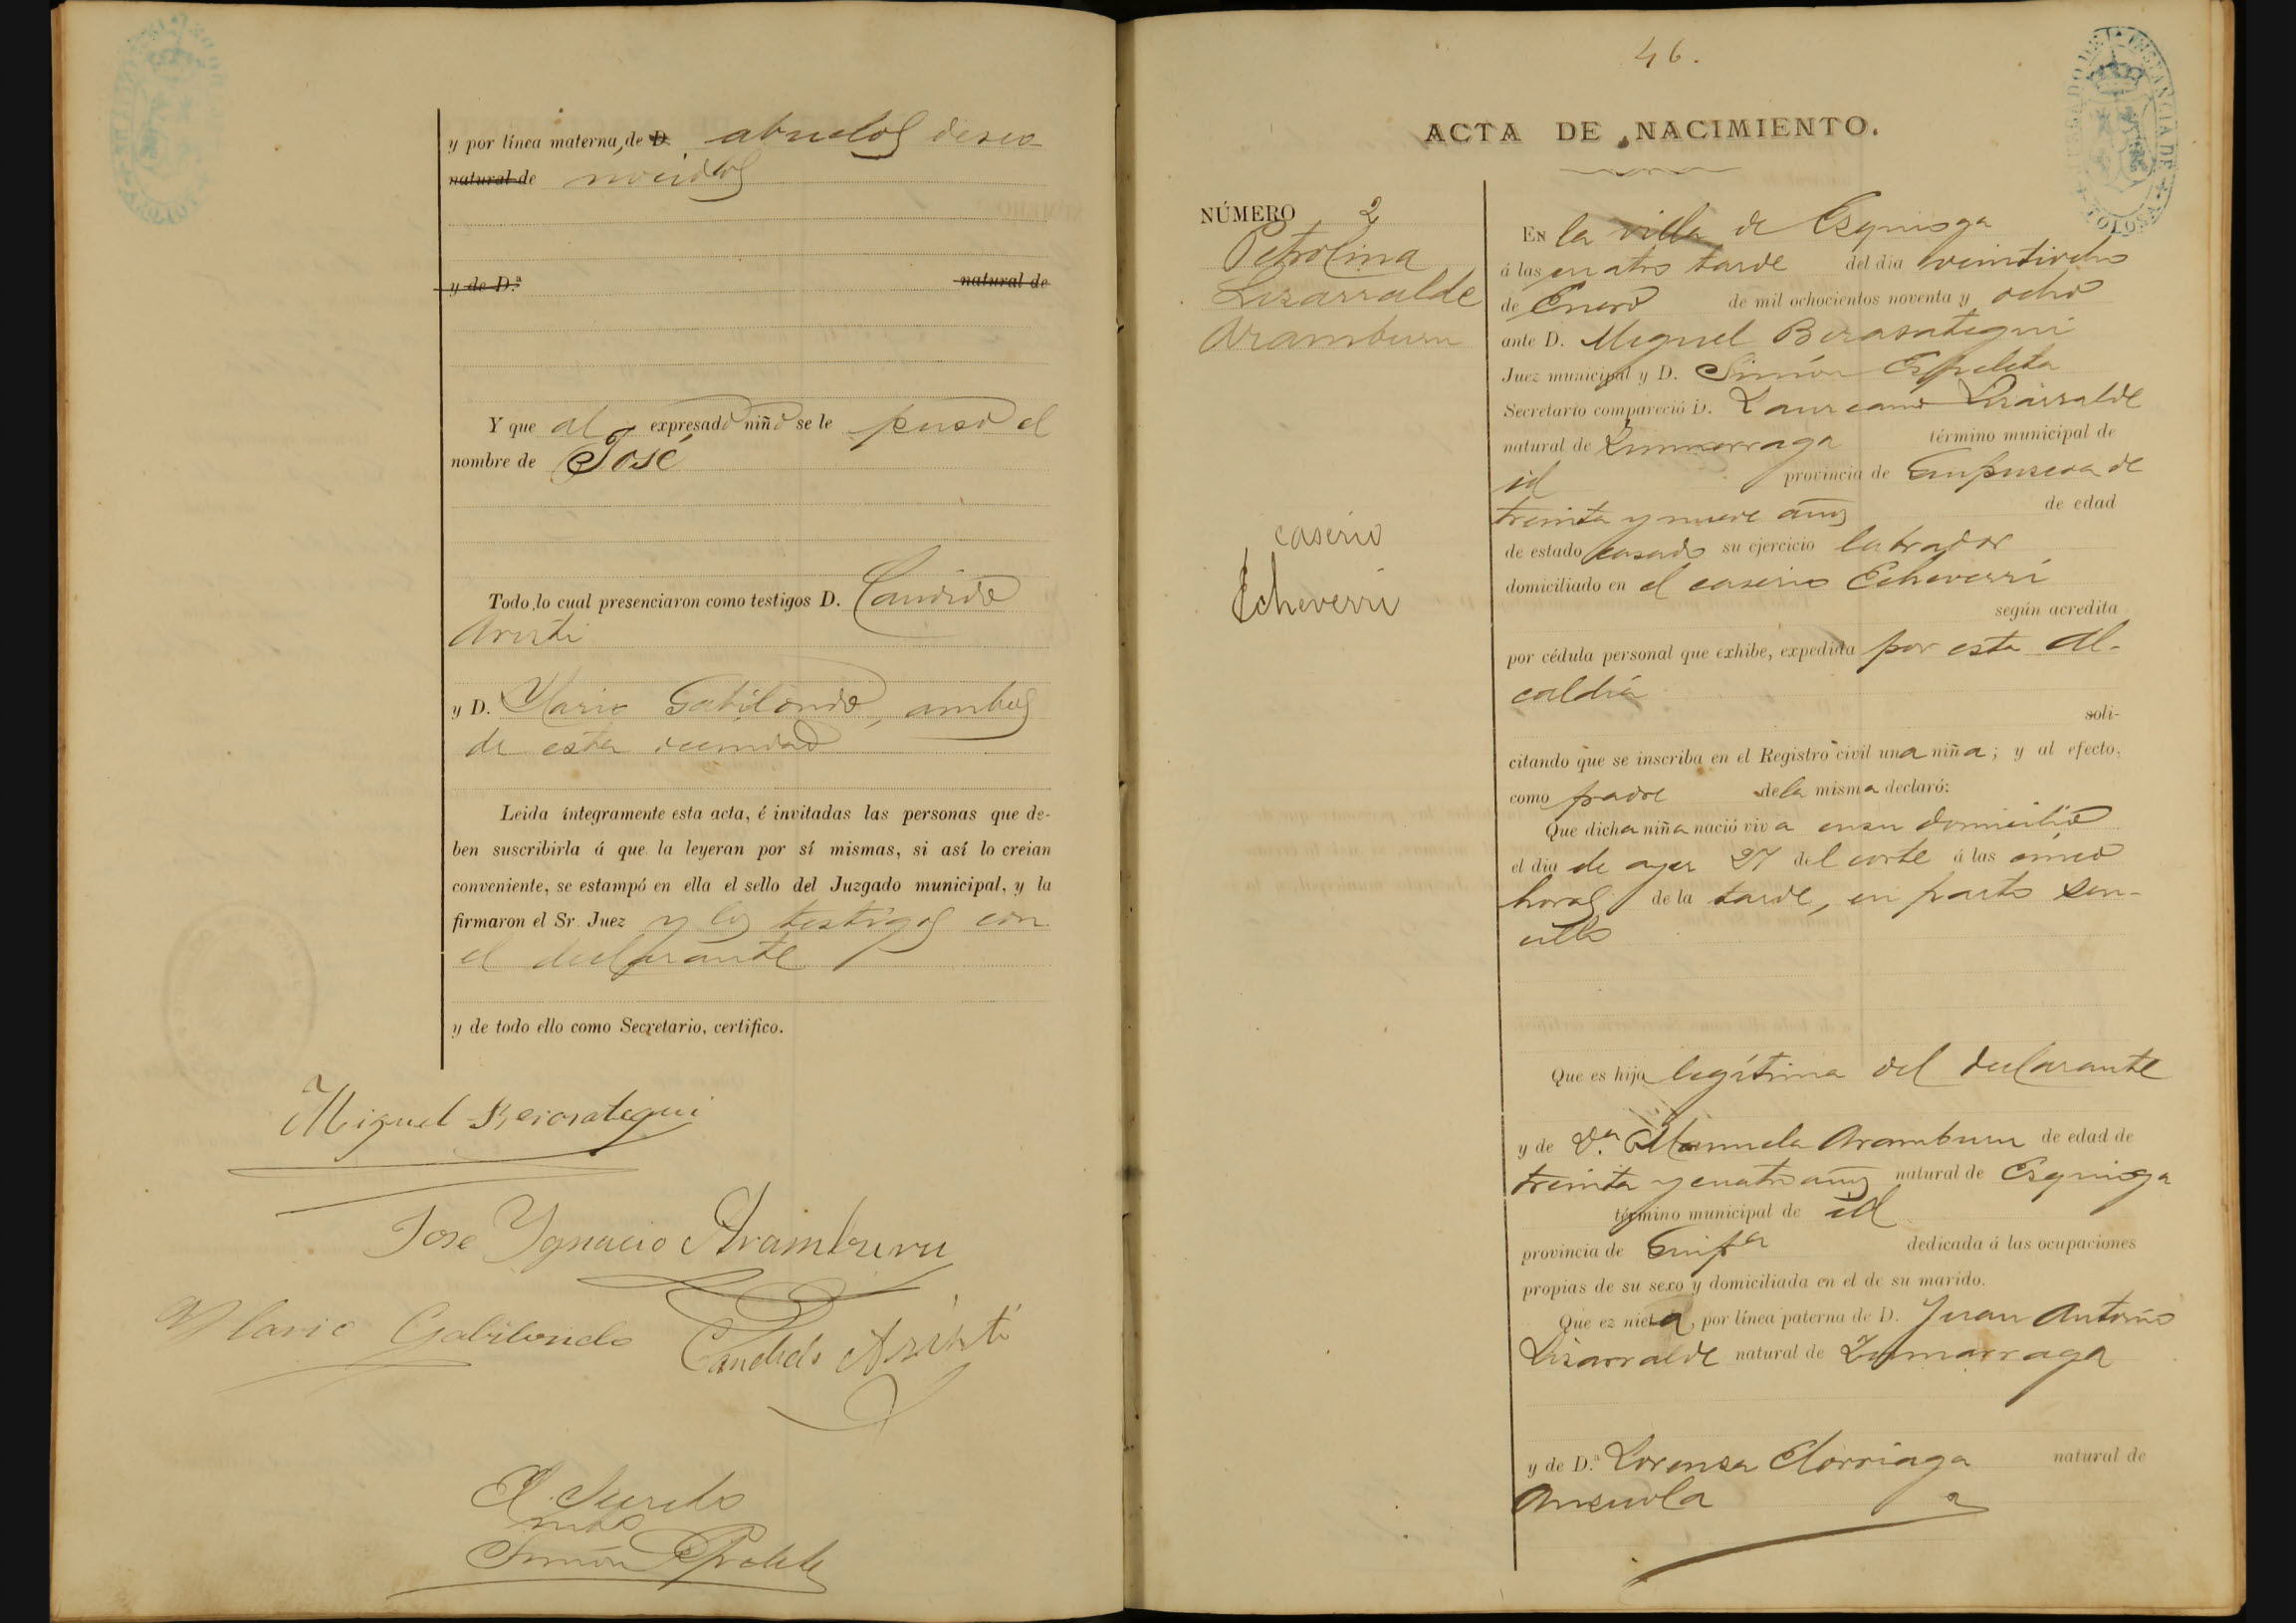 y por línea materna, de D. abuelos desco-
natural de nocidos
y de D.ª natural de
Y que al expresado niño se le puso el
nombre de José
Todo lo cual presenciaron como testigos D. Candido
Aristi
y D. Ylario Gabilondo, ambos
de esta vecindad
Leida íntegramente esta acta, é invitadas las personas que de-
ben suscribirla á que la leyeran por sí mismas, si así lo creian
conveniente, se estampó en ella el sello del Juzgado municipal, y la
firmaron el Sr. Juez y los testigos con
el declarante
y de todo ello como Secretario, certifico.
Miguel Berasategui
Jose Ygnacio Aramburu
Ylario Gabilondo Candido Aristi
El Secreta
Simón Espeleta
46.
ACTA DE NACIMIENTO.
NÚMERO 2
Petrolina
Lizarralde
Aramburu
caserio
Echeverri
En la villa de Ezquioga
á las cuatro tarde del dia veintiocho
de Enero de mil ochocientos noventa y ocho
ante D. Miguel Berasategui
Juez municipal y D. Simón Espeleta
Secretario compareció D. Laureano Lizarralde
natural de Zumarraga término municipal de
id provincia de Guipuzcoa de
treinta y nueve años de edad
de estado casado su ejercicio labrador
domiciliado en el caserio Echeverri
según acredita
por cédula personal que exhibe, expedida por esta Al-
caldía
soli-
citando que se inscriba en el Registro civil una niña; y al efecto,
como padre de la misma declaró:
Que dicha niña nació viva en su domicilio
el dia de ayer 27 del corte á las cinco
horas de la tarde, en parto sen-
cillo
Que es hija legítima del declarante
y de D.ª Manuela Aramburu de edad de
treinta y cuatro años natural de Ezquioga
término municipal de id
provincia de Guipª dedicada á las ocupaciones
propias de su sexo y domiciliada en el de su marido.
Que ez nieta, por línea paterna de D. Juan Antonio
Lizarralde natural de Zumarraga
y de D.ª Lorenza Elorriaga natural de
Anzuola